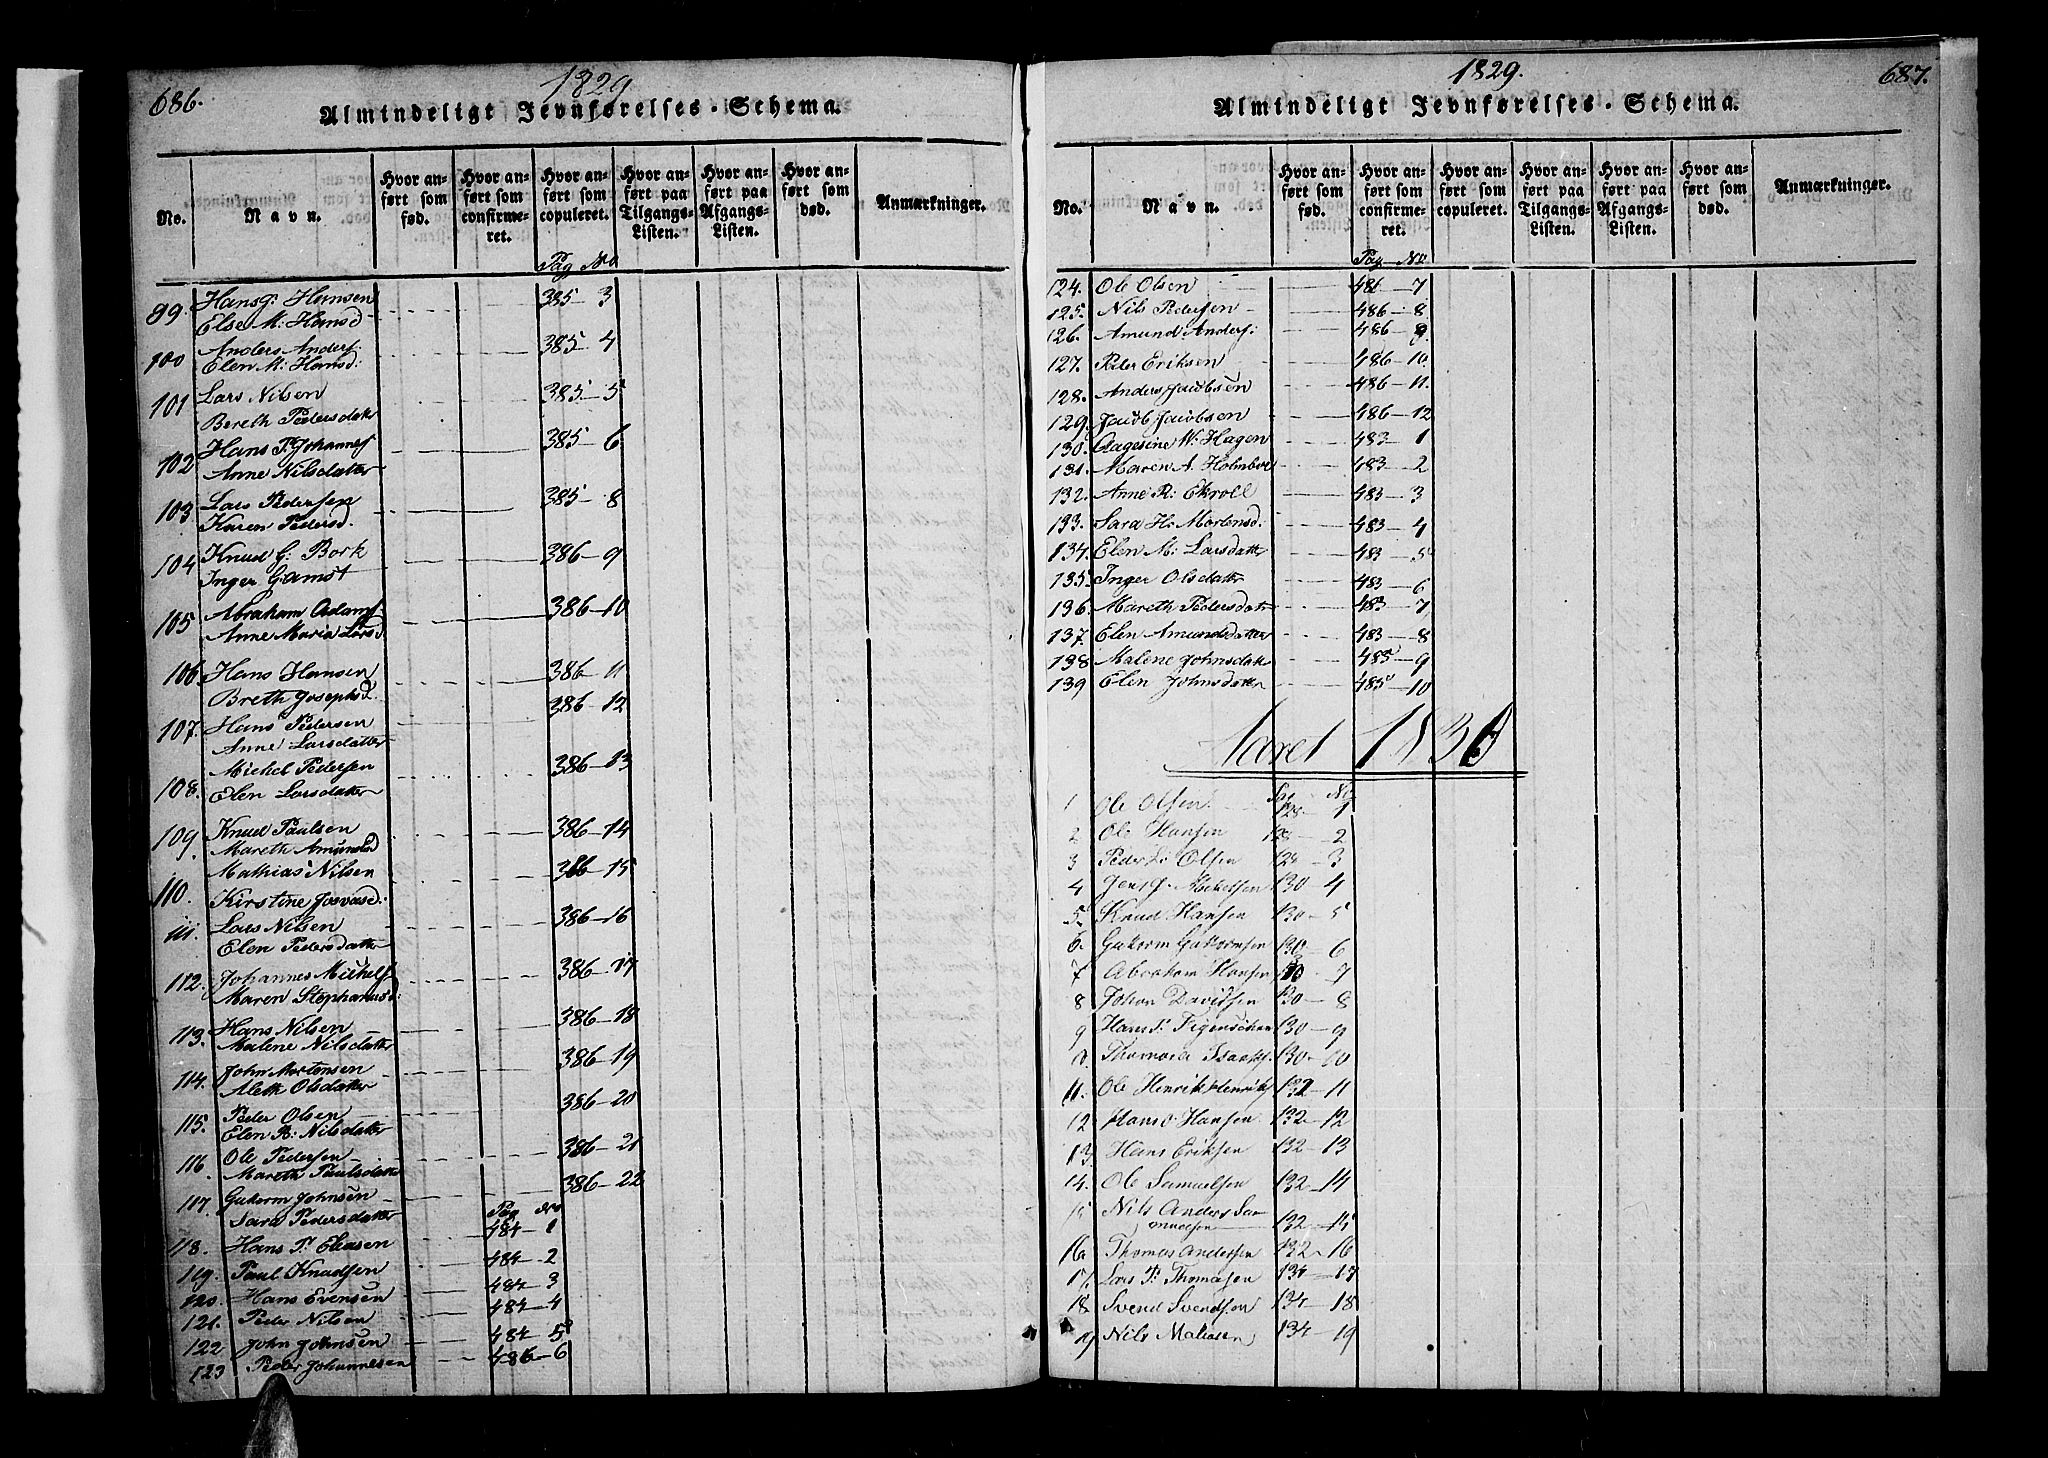 686.
1829
Almindeligt Jevnførelses-Schema.
No.
Navn.
Hvor anført som fød.
Hvor anført som confirmeret.
Hvor anført som copuleret.
Hvor anført paa Tilgangs-Listen.
Hvor anført paa Afgangs-Listen.
Hvor anført som død.
Anmærkninger.
Pag No
99. Hans J: Hansen 385-3
Else M: Hansd
100 Anders Anders: 385-4
Elen M: Hansd:
101 Lars Nilsen 385-5
Bereth Pedersdatter
102 Hans P. Johannes 385-6
Anne Nilsdatter
103 Lars Pedersen 385-8
Karen Pedersd.
104 Knud G: Bork 386-9
Inger Gamst
105 Abraham Adams: 386-10
Anne Maria Larsd
106. Hans Hansen 386-11
Breth Josephsd. 386-12
107. Hans Pedersen
Anne Larsdatter
Michel Pedersen 386-13
108. Elen Larsdatter
109. Knud Paulsen 386-14
Mareth Amundsd
Mathias Nilsen 386-15
110. Kirstine Josvasd:
111. Lars Nilsen 386-16
Elen Pedersdatter
112. Johannes Mickels 386-17
Maren Stephanusd:
113. Hans Nilsen 386-18
Malene Nilsdatter
114. John Mortensen 386-19
Aleth Olsdatter
115. Peder Olsen 386-20
Elen R: Nilsdatter
116 Ole Pedersen 386-21
Mareth Paulsdatter
117. Gutorm Johnsen 386-22
Sara Pedersdatter
Pag No
118. Hans P. Eliasen 484-1
119. Paul Knudsen 484-2
120. Hans Evensen 484-3
121. Peder Nilsen 484-4
122 John Johnsen 484-5
123 Peder Johannesen 486-6
1829.
687.
Almindeligt Jevnførelses-Schema.
No.
Navn.
Hvor anført som fød.
Hvor anført som confirmeret.
Hvor anført som copuleret.
Hvor anført paa Tilgangs-Listen.
Hvor anført paa Afgangs-Listen.
Hvor anført som død.
Anmærkninger.
Pag-No
124. Ole Olsen 486-7
125. Nils Pedersen 486-8
126. Amund Anders: 486-9.
127. Peder Eriksen 486-10.
128. Anders Jacobsen 486-11.
129. Jacob Jacobsen 486-12
130. Aagesine W. Hagen 483-1
131. Maren A. Holmboe 483-2
132. Anne R: Ekroll 483-3
133. Sara H: Mortensd: 483-4
134. Elen M: Larsdatter 483-5
135. Inger Olsdatter 483-6
136. Mareth Pedersdatr 483-7
137. Elen Amundsdatter 483-8
138 Malene Johnsdatt 485-9
139 Elen Johnsdatter 485-10
Aaret 1830
Pag No
1 Ole Olsen 128-1
2 Ole Hansen 128-2
3 Peder L: Olsen 128-3
4 Jens J. Mickelsen 130-4
5. Knud Hansen 130-5
6. Gutorm Gutormsen 130-6
7 Abraham Hansen 130-7
8 Johan Davidsen 130-8
9 Hans P. Figenschou 130-9
10. Thomas Isaaks. 130-10
11. Ole Henrik Henriks 132-11
12 Hans Hansen 132-12
13 Hans Eriksen 132-13
14. Ole Samuelsen 132-14
15 Nils Anders Sa-
muelsen 132-15
16 Thomas Andersen 132-16
17. Lars P. Thomasen 134-17
18 Svend Svendsen 134-18
19 Nils Matisen 134-19